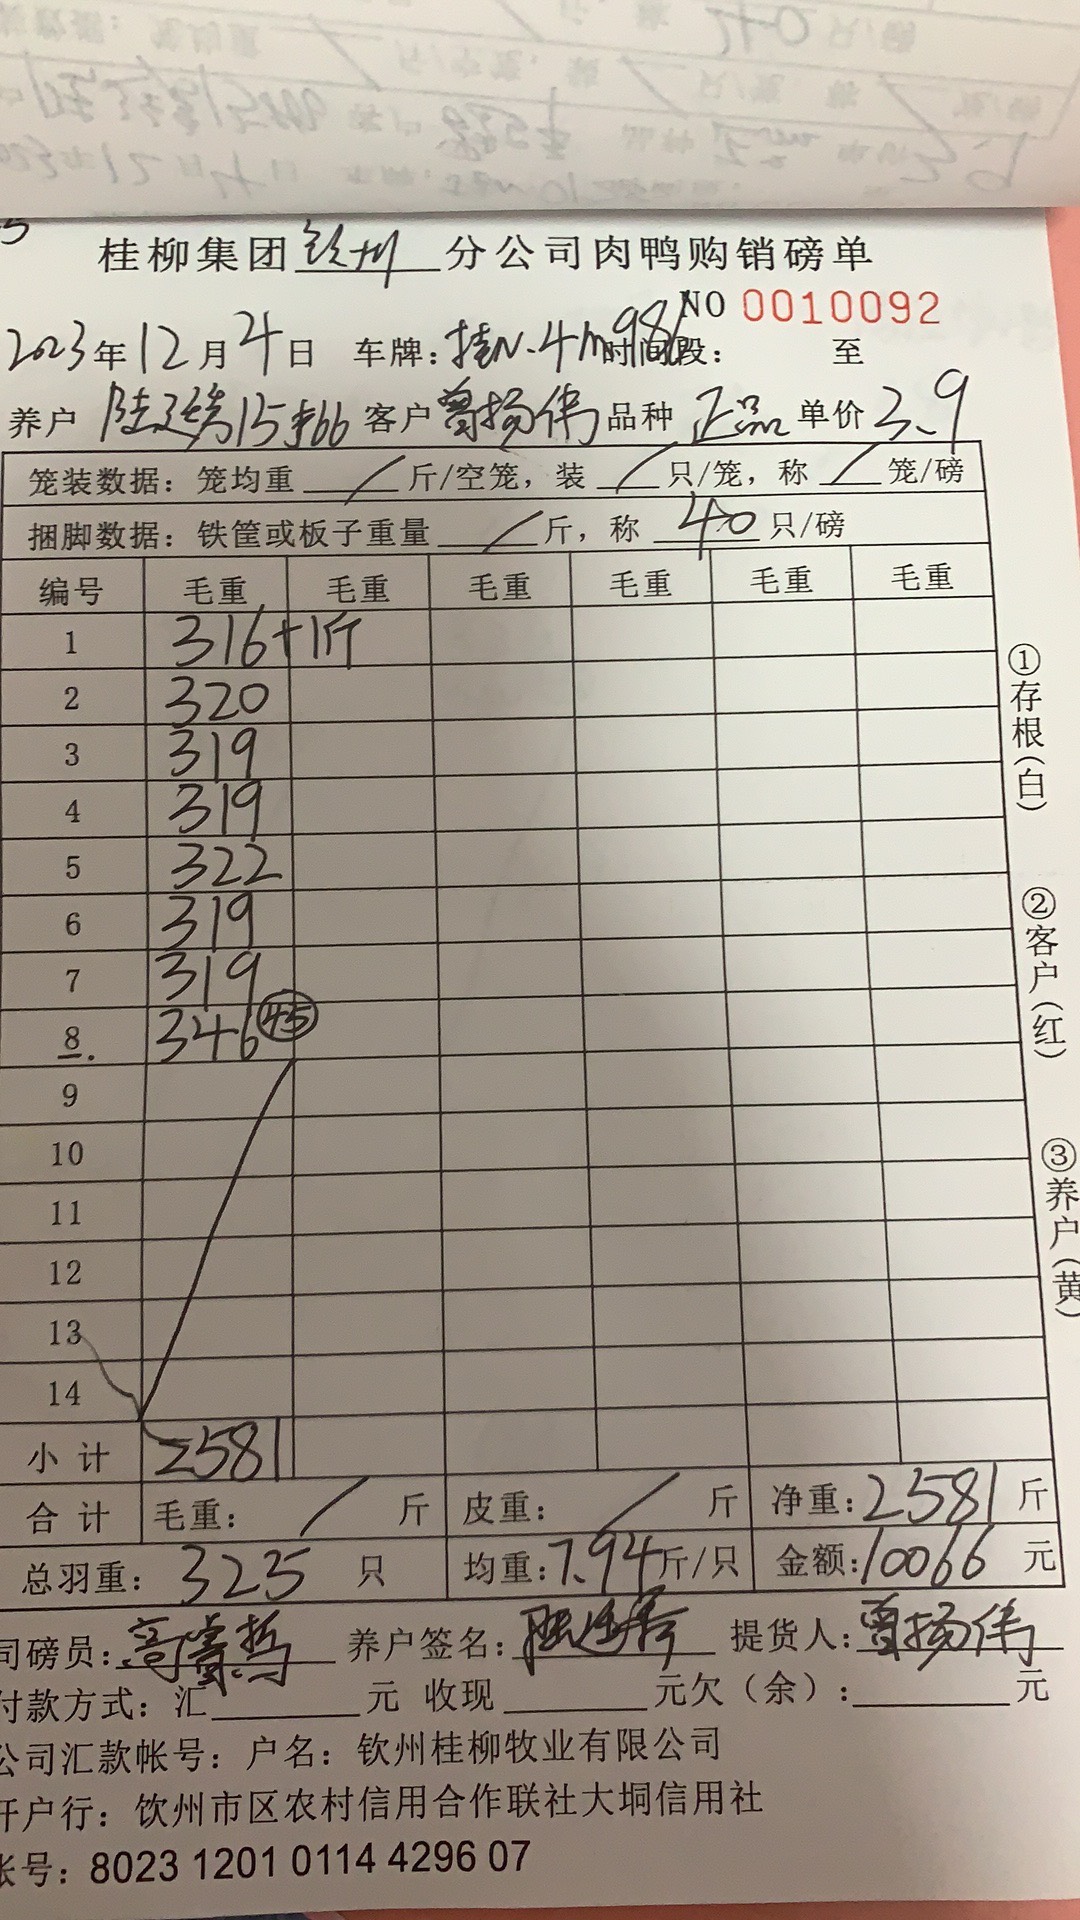 桂柳集团钦州分公司肉鸭购销磅单
NO 0010092
2023年12月4日 车牌：桂N. 时间段： 至
养户 客户 曾扬伟 品种 正品 单价 3.9
笼装数据：笼均重 / 斤/空笼，装 / 只/笼，称 / 笼/磅
捆脚数据：铁筐或板子重量 / 斤，称 40 只/磅
编号 毛重 毛重 毛重 毛重 毛重 毛重
1 316+1斤
2 320
3 319
4 319
5 322
6 319
7 319
8. 346 45
9
10
11
12
13
14
小计 2581
合计 毛重： / 斤 皮重： / 斤 净重：2581 斤
总羽重： 325 只 均重：7.94 斤/只 金额：10066 元
司磅员： 养户签名： 提货人：曾扬伟
付款方式：汇 元 收现 元欠（余）： 元
公司汇款帐号：户名：钦州桂柳牧业有限公司
开户行：钦州市区农村信用合作联社大垌信用社
帐号：8023 1201 0114 4296 07
①存根（白）
②客户（红）
③养户（黄）